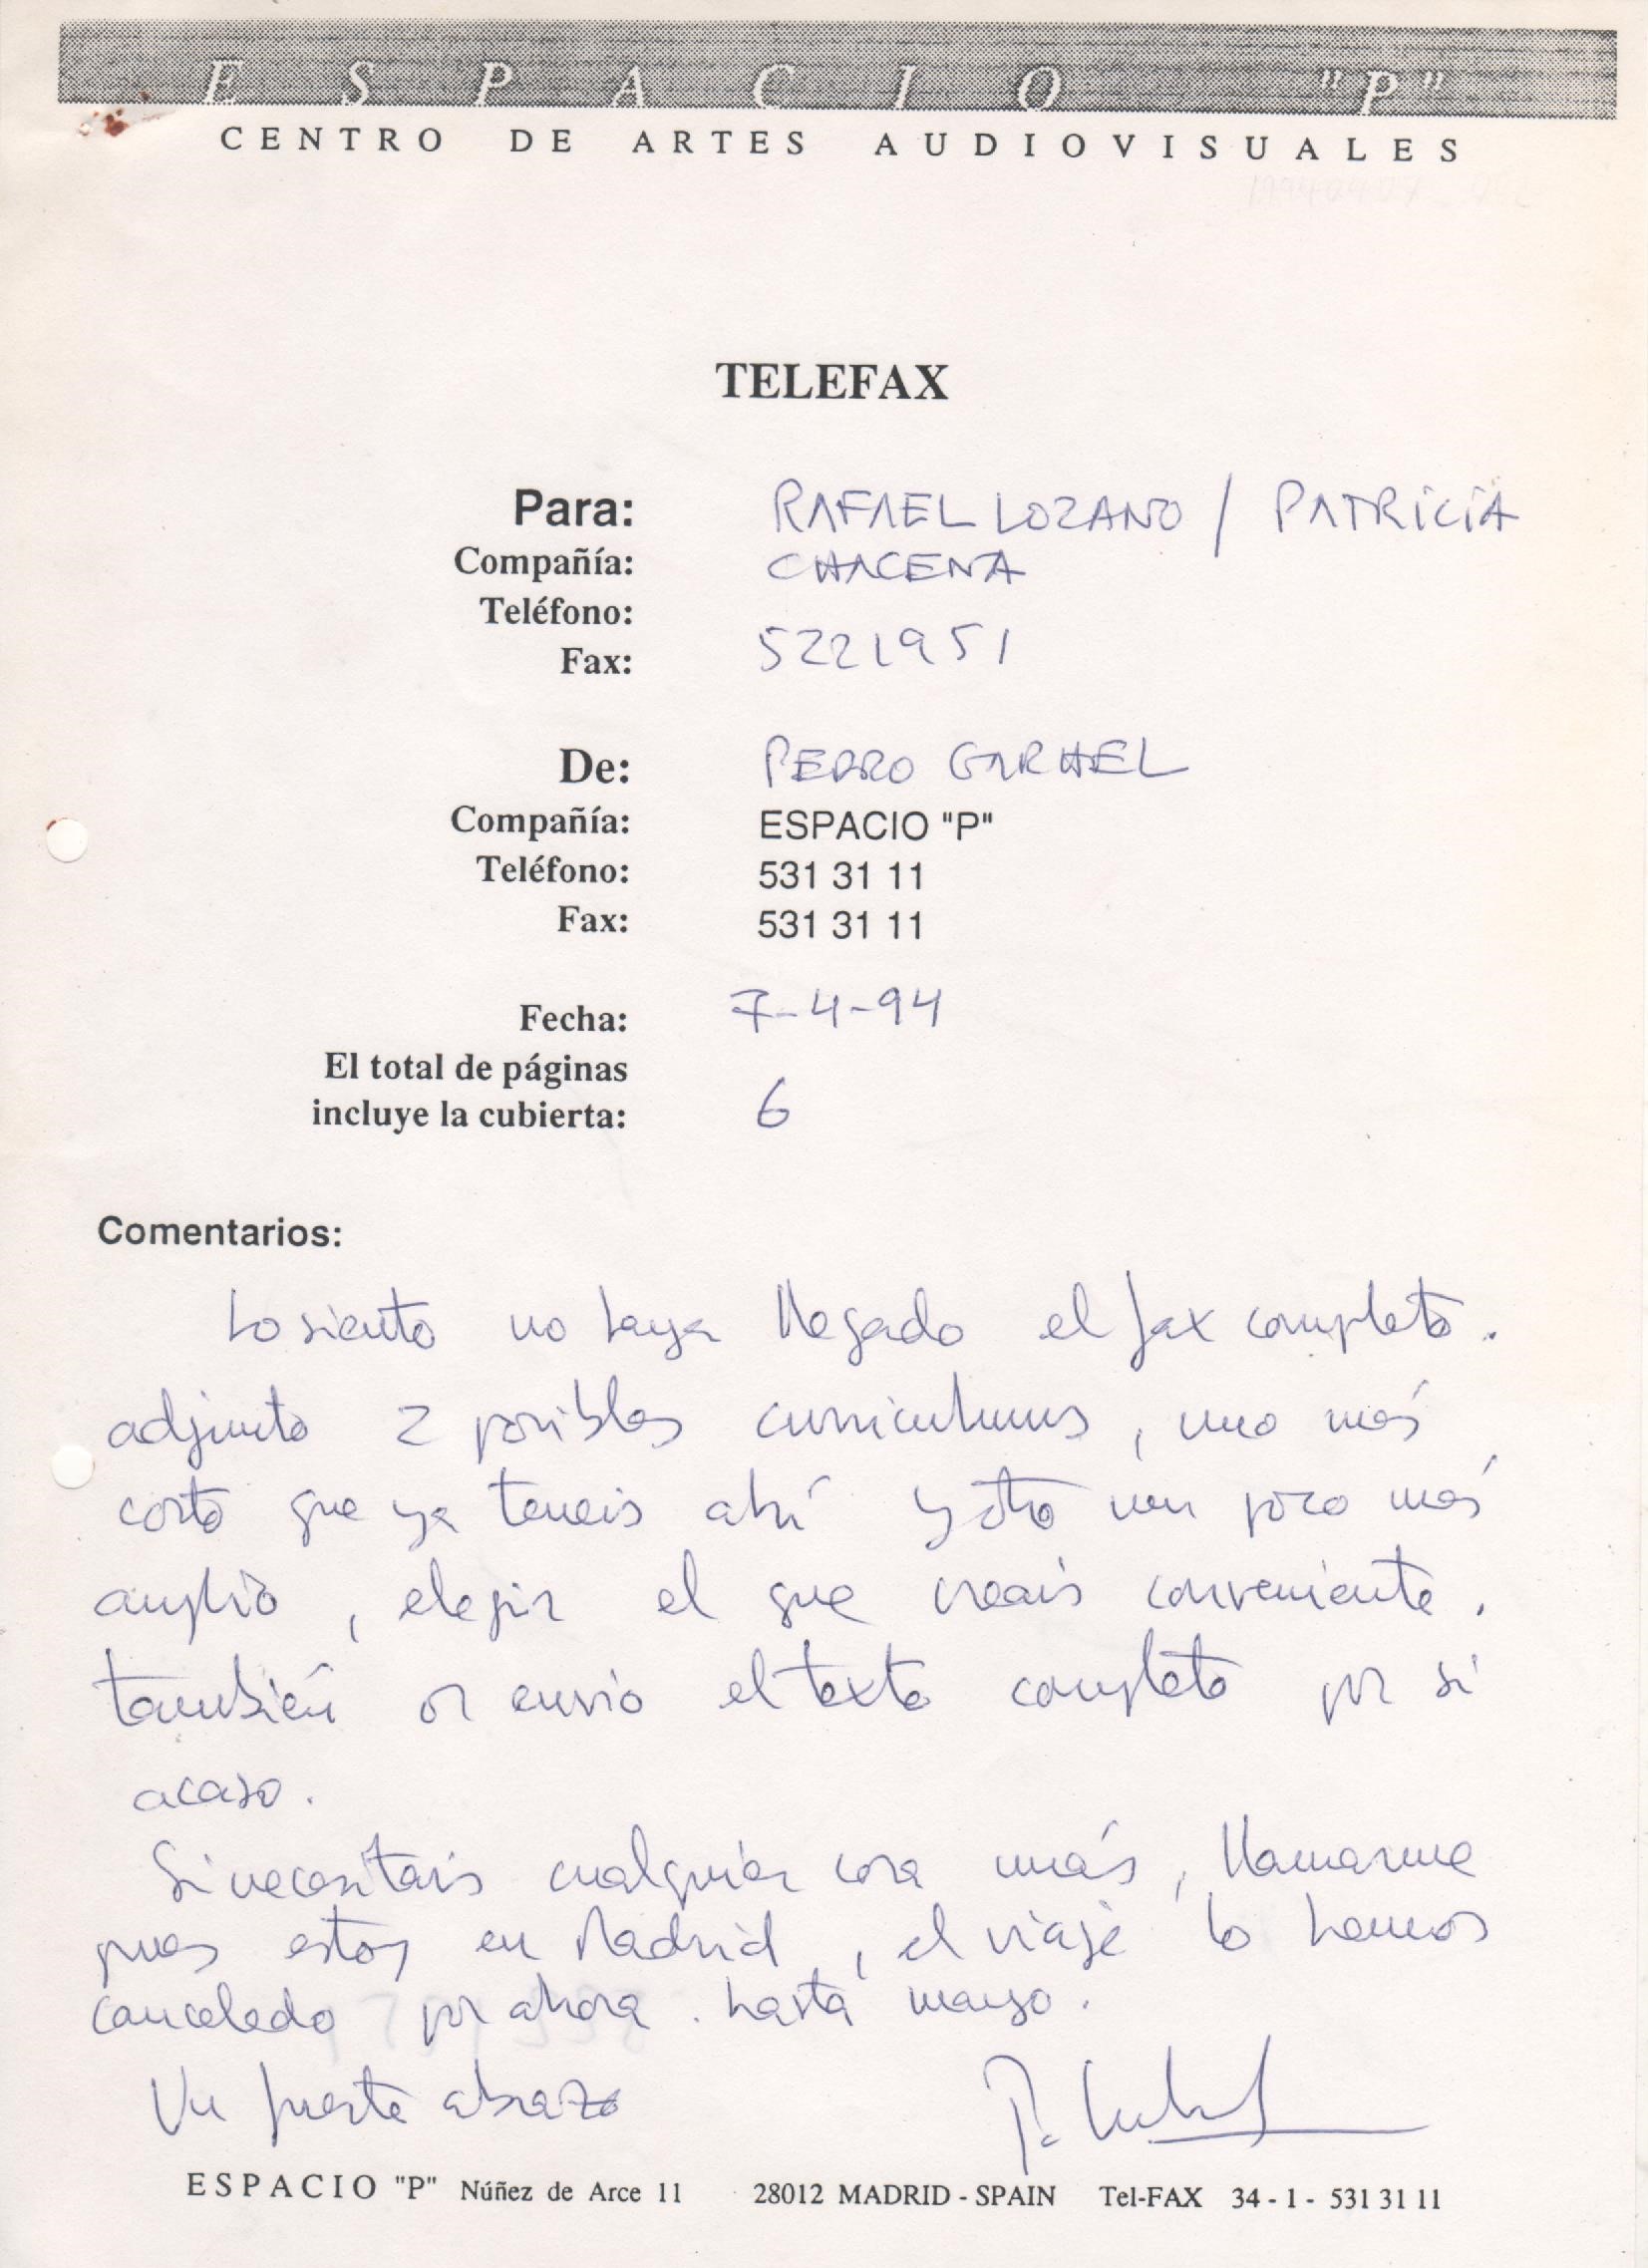 ESPACIO "P"
CENTRO DE ARTES AUDIOVISUALES
TELEFAX
Para: RAFAEL LOZANO / PATRICIA
Compañía: CHACENA
Teléfono:
Fax: 5221951
De: PEDRO GARHEL
Compañía: ESPACIO "P"
Teléfono: 531 31 11
Fax: 531 31 11
Fecha: 7-4-94
El total de páginas
incluye la cubierta: 6
Comentarios:
Lo siento no haya llegado el fax completo.
adjunto 2 posibles curriculums, uno más
corto que ya teneis ahí y otro un poco más
amplio, elegir el que creais conveniente.
también os envio el texto completo por si
acaso.
Si necesitais cualquier cosa más, llamarme
pues estoy en Madrid, el viaje lo hemos
cancelado por ahora. hasta mayo.
Un fuerte abrazo
ESPACIO "P" Núñez de Arce 11 28012 MADRID - SPAIN Tel-FAX 34 - 1 - 531 31 11